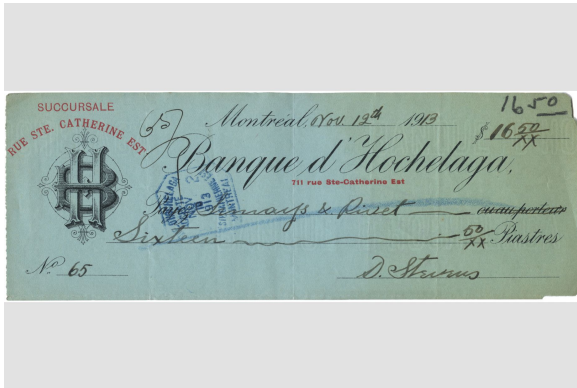 SUCCURSALE
RUE STE. CATHERINE EST
16 50
Montréal, Nov 12th 1913
$ 16 50/XX
Banque d'Hochelaga,
711 rue Ste-Catherine Est
Payez & ou au porteur
Sixteen 50/XX Piastres
No 65